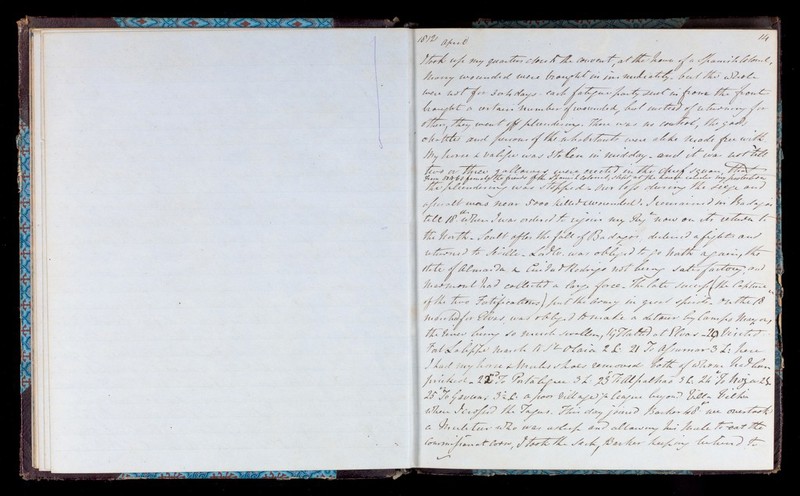 1812 April 14
I took up my quarters close to the convent, at the house of a Spanish Colonel,
many wounded were brought in immediately - but the whole
were not for 3 or 4 days - each fatigue party sent in from the front
brought a certain number of wounded, but instead of returning for
others, they went off plundering. there was no control, the goods
chattles and persons of the inhabitants were alike made free with
My horse & valise was stolen in midday - and it was not till
two or three gallowses were erected in the great square, that
the plundering was stopped - our loss during the siege and
assault was near 5000 killed & wounded. I remained in Badajos
till 18th when I was ordered to rejoin my Regt now on its return to
the North - Soult after the fall of Badajos declined a fight and
returned to Seville - Ld W. was obliged to go North again, the
state of Almeida & Ciudad Rodrigo not being satisfactory, and
Marmont had collected a large force. The late success (the Capture
of the two Fortifications) put the army in great spirits. On the 18
marched for Elvas, was obliged to make a detour by Campo Mayor,
the river being so much swollen, 19 Halted at Elvas - 20 Visited
Fort Lalippe march to St Olaia 2 L. 21 To Assumar 3 L: here
I had my horse & mules shoes removed both of whom had been
pricked - 22d To Portalegre 3 L 23 To Alpalhao 3 L. 24 To Niza 2 L
25 To Sarnadas 3½ L. a poor village, 1 league beyond Villa Velha
where I crossed the Tagus. This day joined Barker 48th we overtook
a Muleteer who was asleep and allowing his Mule to eat the
commissariat corn, I took the sack, Barker keeping behind to